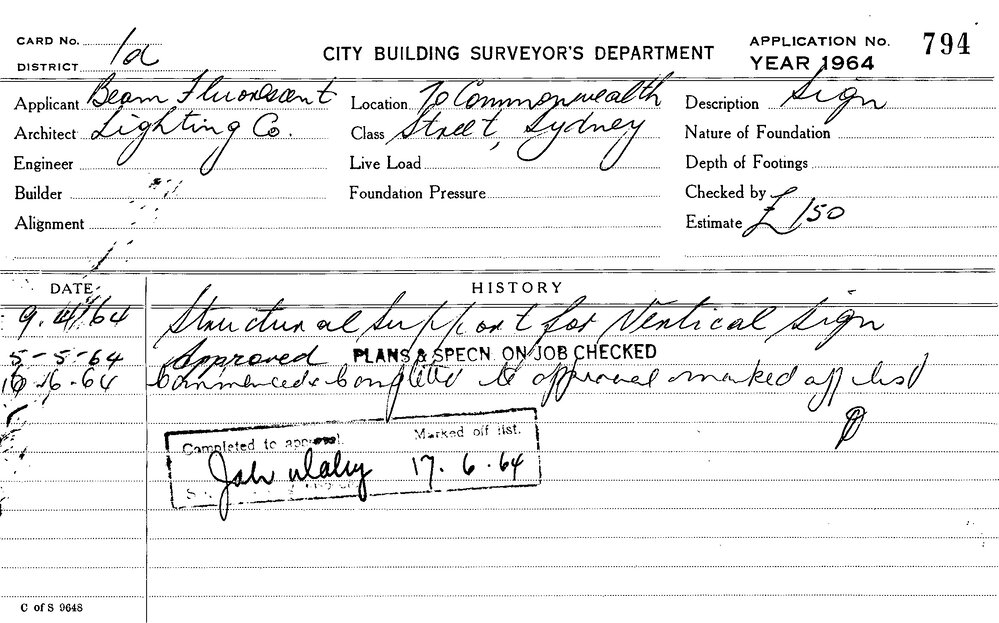 CARD No. 1a
CITY BUILDING SURVEYOR'S DEPARTMENT
APPLICATION No. 794
DISTRICT
YEAR 1964
Applicant Beam Fluorescent Location 70 Commonwealth Description Sign
Architect Lighting Co. Class Street, Sydney Nature of Foundation
Engineer Live Load Depth of Footings
Builder Foundation Pressure Checked by
Alignment Estimate £150
DATE HISTORY
9.4.64 Structural support for Vertical Sign
5-5-64 Approved PLANS & SPECN. ON JOB CHECKED
16.6.64 Commenced & Completed to approval & marked off list
Completed to approval. Marked off list.
17.6.64
C of S 9648